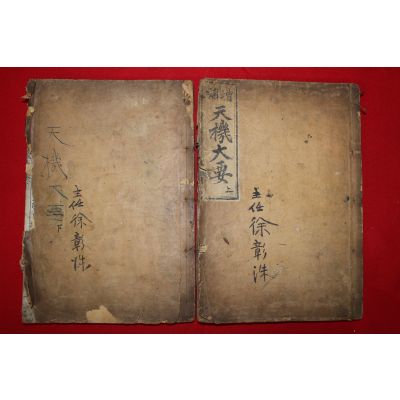 增補
天機大要 上
主任 徐彰洙
天機大要 下
主任 徐彰洙